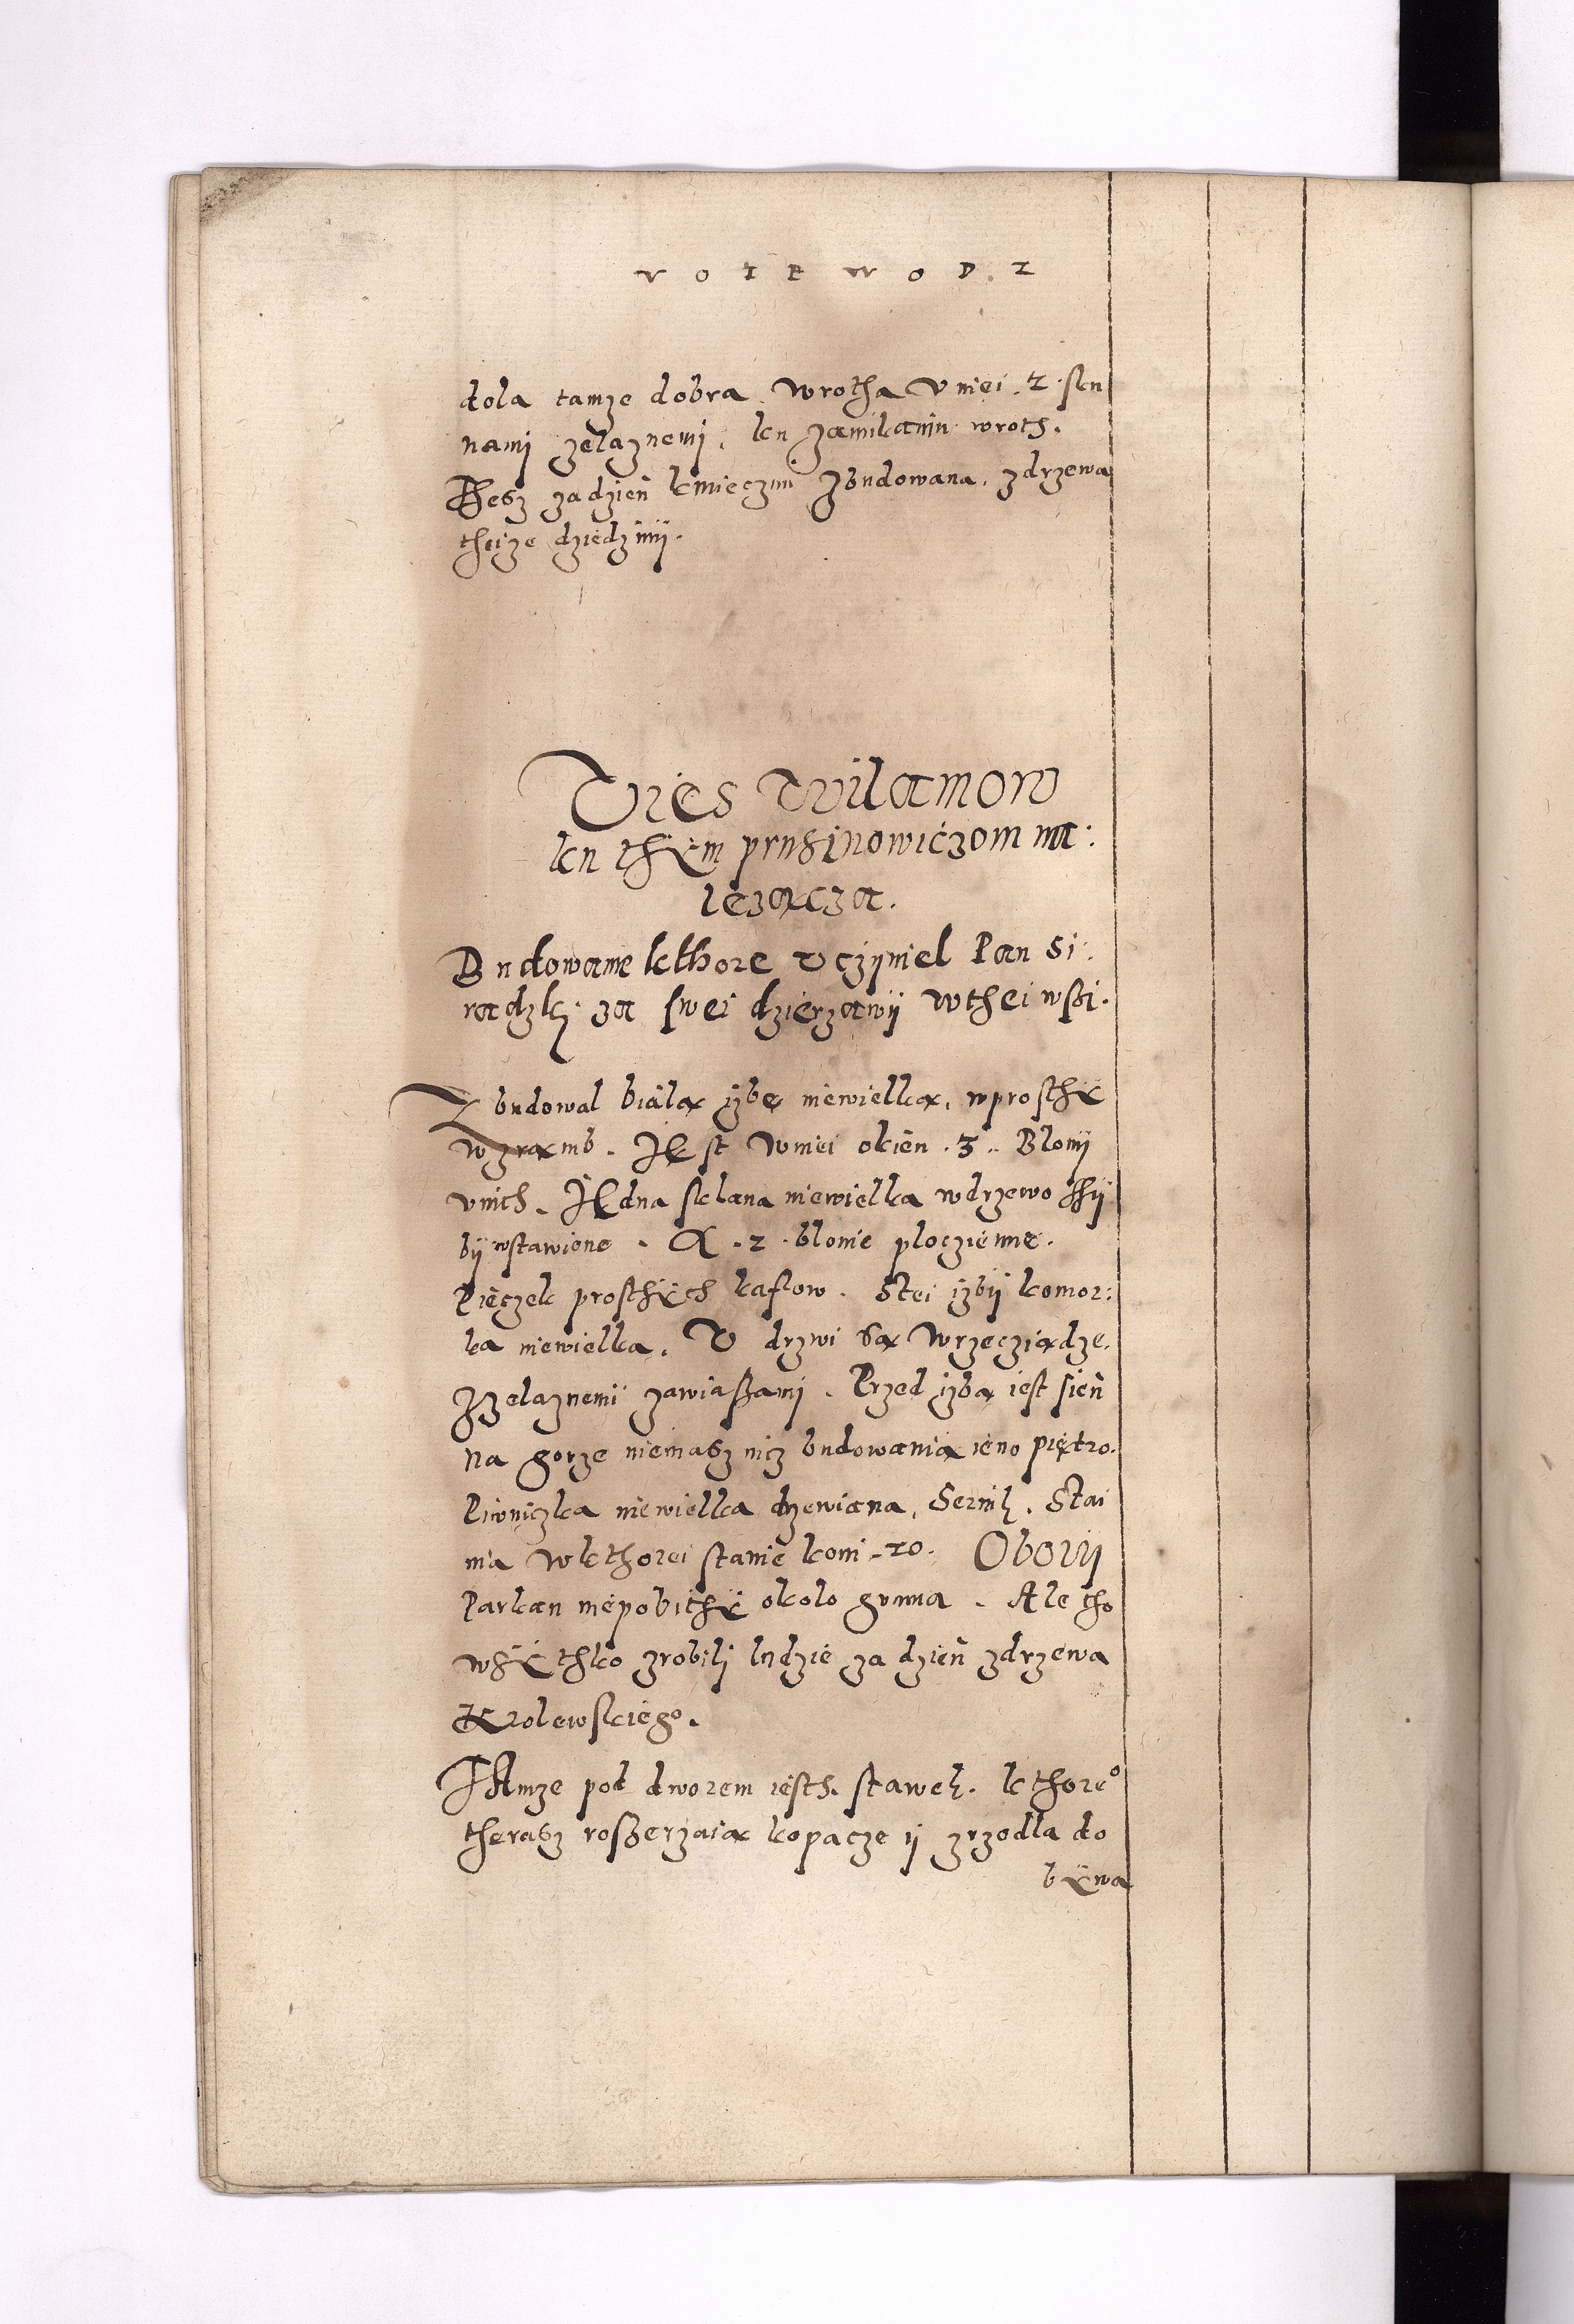 VOIEWODZ
dola tamże dobra. Wrotha v niei. 2. sku
nami zelaznemi, ku zamikaniu wroth.
Thesz za dzień kmieczmi Zbudowana, z drzewa
theize dziedziny.
Vies Wilamow
ku thẏm prusinowiczom na:
lezącza.
Budowanie kthore vczyniel Pan Si:
radzky za swei dzierzawy w thei wsi.
Zbudował białą yzbę niewielką, w prosthẏ
w zrąmb. Jest w niei okien. 3. Błony
v nich. Jedna sklana niewielka w drzewo thy
by wstawiene. A. 2. błonie ploczienne.
Pieczek prosthẏch kaflow. S tei yzby komor:
ka niewielka. V drzwi są wrzecziądze
Z zelaznemi zawiaszami. Przed yzbą iest sień
Na gorze niemasz nicz budowania ieno piętro.
Piwniczka niewielka drzewiana, Sernik. Stai
nia w kthorei stanie koni. 10. Obory
Parkan niepobithẏ około gumna. Ale tho
wsẏthko zrobili ludzie za dzień z drzewa
Krolewskiego.
TAmze pod dworem iesth. stawek. kthore°
therasz rosszerzaią kopacze y zrzodla do
bẏwa